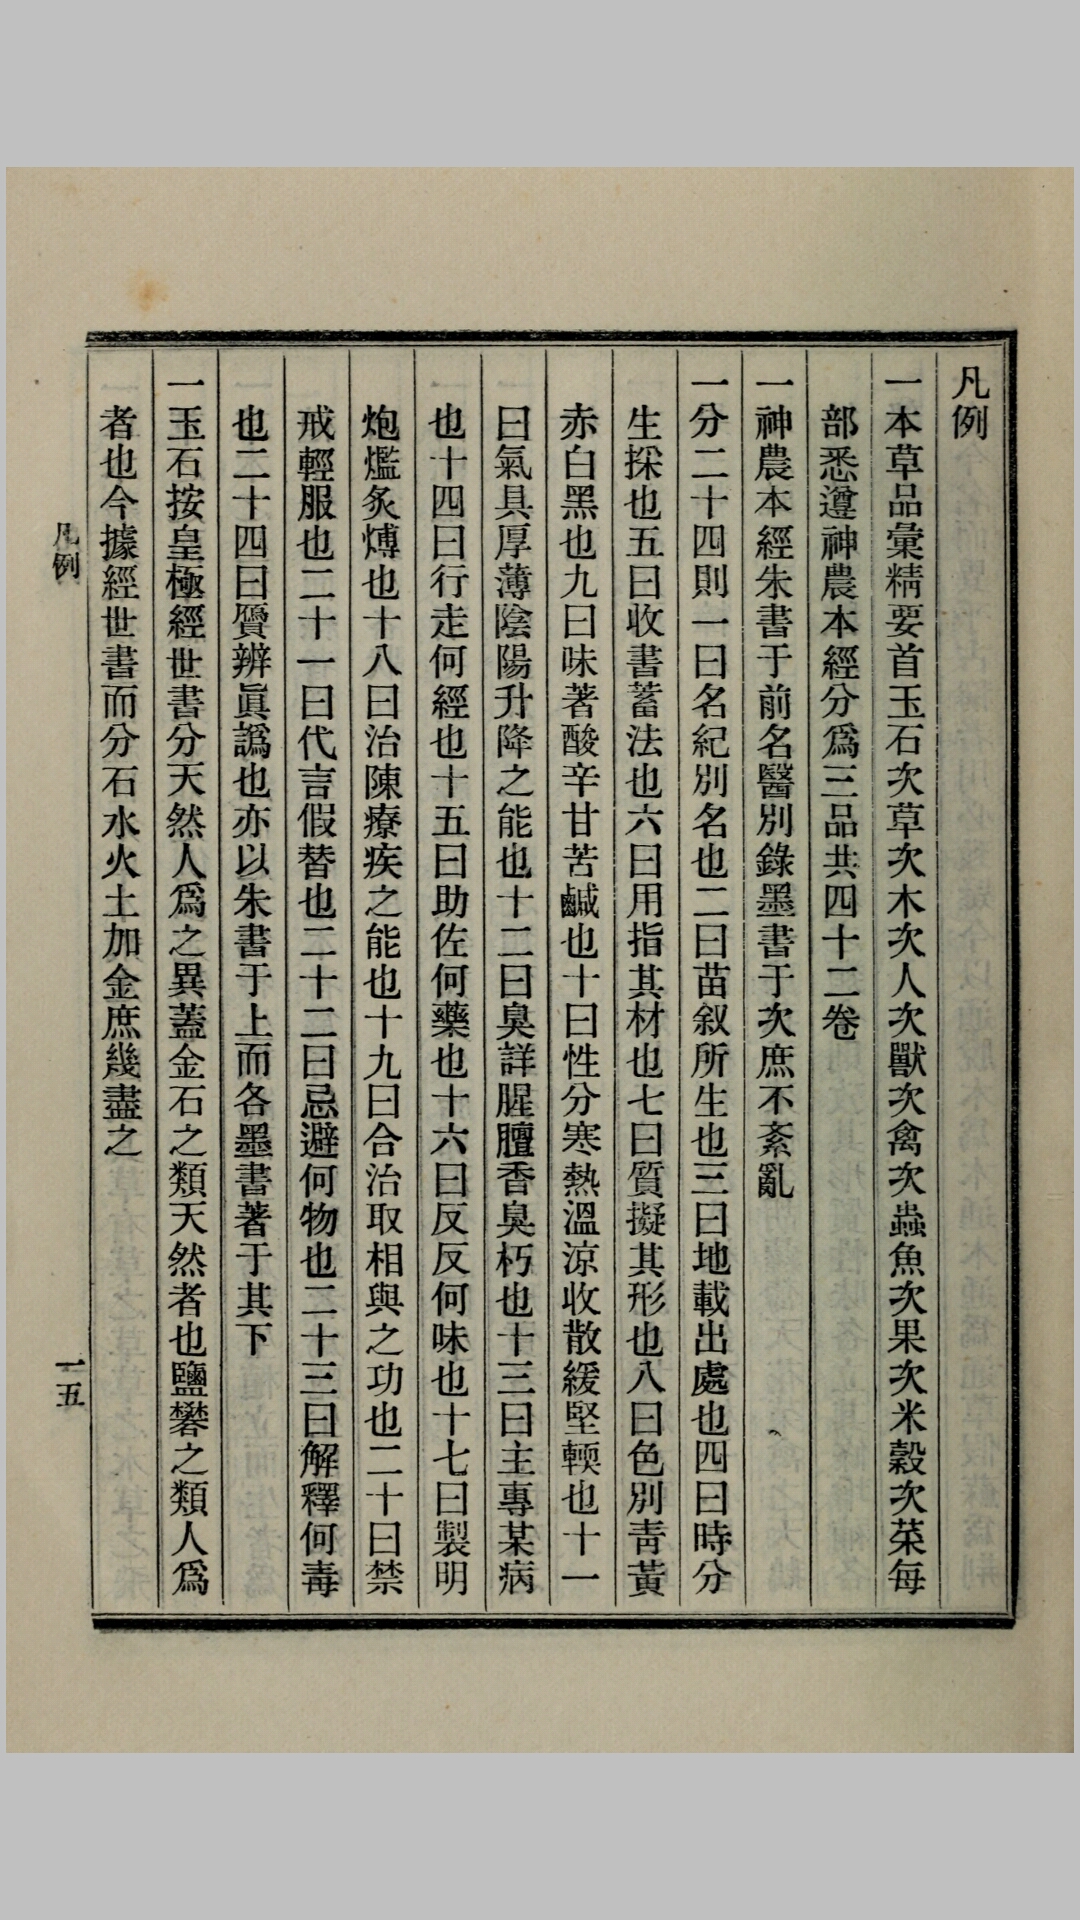 凡例
一本草品彙精要首玉石次草次木次人次獸次禽次蟲魚次果次米穀次菜每
部悉遵神農本經分爲三品共四十二卷
一神農本經朱書于前名醫別錄墨書于次庶不紊亂
一分二十四則一曰名紀別名也二曰苗叙所生也三曰地載出處也四曰時分
生採也五曰收書蓄法也六曰用指其材也七曰質擬其形也八曰色別靑黃
赤白黑也九曰味著酸辛甘苦鹹也十曰性分寒熱溫涼收散緩堅輭也十一
曰氣具厚薄陰陽升降之能也十二曰臭詳腥膻香臭朽也十三曰主專某病
也十四曰行走何經也十五曰助佐何藥也十六曰反反何味也十七曰製明
炮爁炙煿也十八曰治陳療疾之能也十九曰合治取相與之功也二十曰禁
戒輕服也二十一曰代言假替也二十二曰忌避何物也二十三曰解釋何毒
也二十四曰贋辨眞譌也亦以朱書于上而各墨書著于其下
一玉石按皇極經世書分天然人爲之異蓋金石之類天然者也鹽礬之類人爲
者也今據經世書而分石水火土加金庶幾盡之
凡例
一五